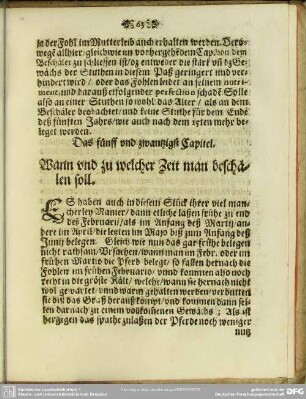 63
ja der Fohl im Mutterleib auch erhalten werden. Deroꝛ
wegē allhier/ gleichwie im vorhergehēdem Cap. von dem
Beschäler zu schliessen ist/ ob entweder die stärk vñ dz Ge-
wächs der Stuthen in diesem Paß geringert vnd ver-
hindert wird/ oder das Fohlen/ an seinem nutri-
ment, vnd darauß erfolgender perfection schade/ Solle
also an einer Stuthen so wohl das Alter/ als an dem
Beschäler beobachtet/ vnd keine Stuthe für dem Ende
deß fünfften Jahrs/ wie auch nach dem nicht mehr be-
leget werden.
Das fünff vnd zwantzigst Capitel.
Wann vnd zu welcher Zeit man beschä-
len soll.
ES haben auch in diesem Stück ihrer viel man-
cherley Manier/ dann etliche laßen frühe zu end
des Februarii/ als im Anfang deß Martij/ an-
dere im April/ die letzten im Majo biß zum Anfang deß
Junij belegen. Gleich wie nun das gar frühe belegen
nicht rathsam/ Vrsachen/ wann man im Febr. oder im
frühen Martio die Pferd belegt/ so fallen hernach die
Fohlen im frühen Februario/ vnnd kommen also noch
recht in die gröste Kält/ welche/ wann sie hernach nicht
wol gewartet/ vnnd warm gehalten werden/ verbutten
sie biß das Graß herauß kompt/ vnd kommen dann sel-
ten darnach zu einem vollkommenen Gewächs; Als ist
hergegen das spathe zulaßen der Pferde noch weniger
nutz